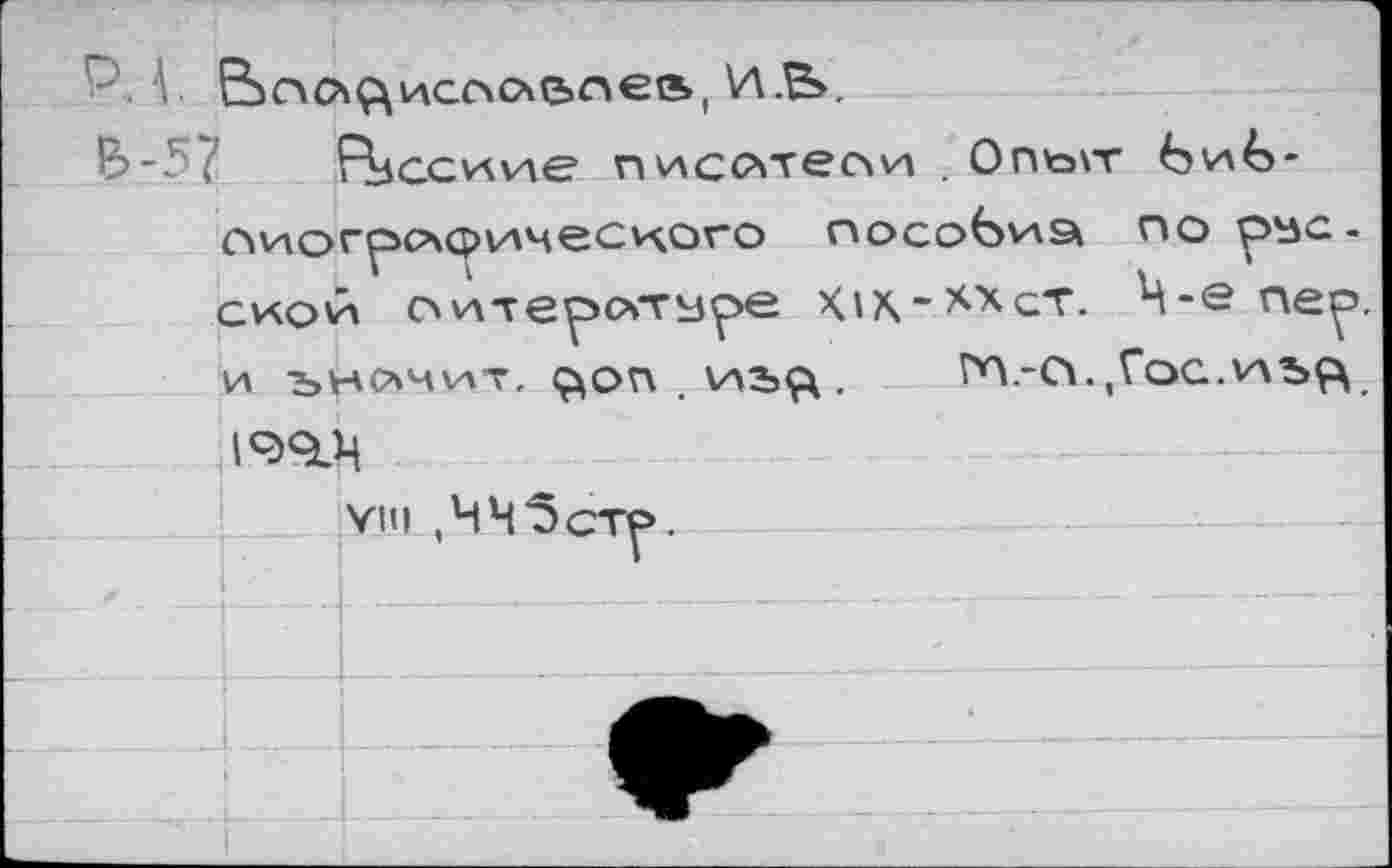 Р.1. Владиславлев, И.В.
В-57 Русские писатели. Опыт биб-
лиографического пособия по рус-
ской литературе XIX-XXст. 4-е пер.
и значит. доп. изд. М.-Л., Гос.изд.
1924
VIII, 445стр.